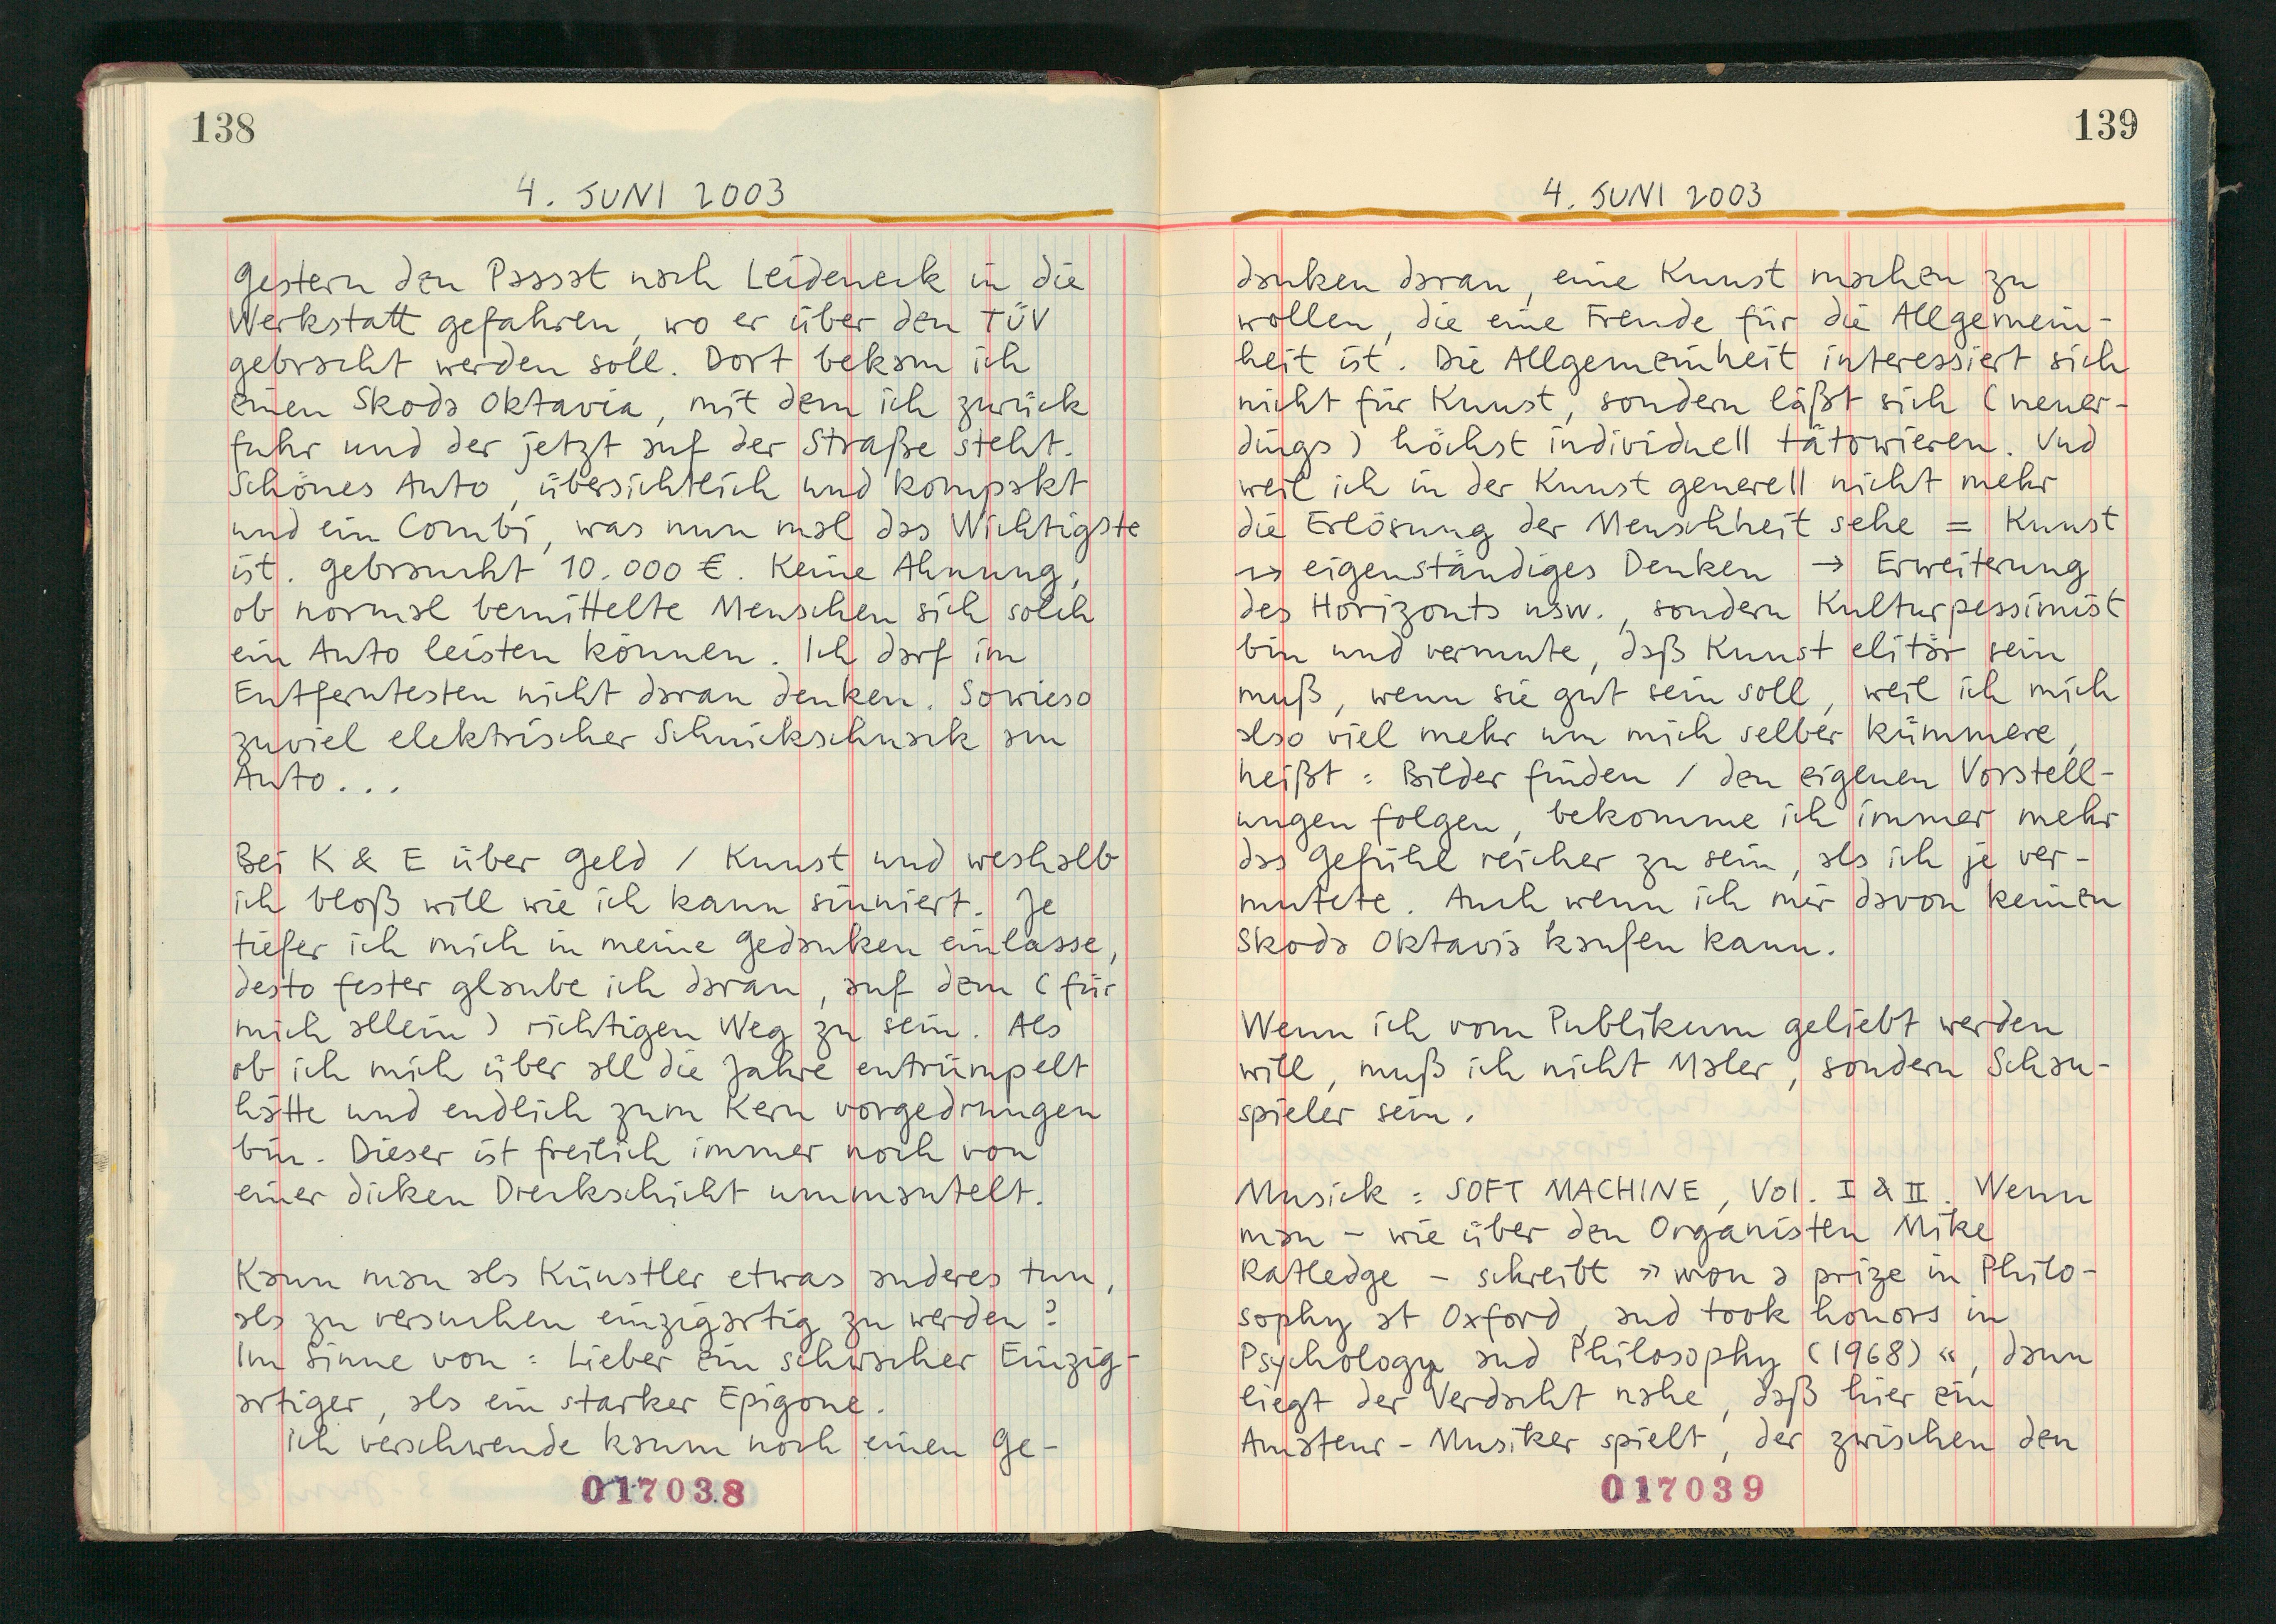 138
4. JUNI 2003
Gestern den Passat nach Leideneck in die
Werkstatt gefahren, wo er über den TÜV
gebracht werden soll. Dort bekam ich
einen Skoda Oktavia, mit dem ich zurück
fuhr und der jetzt auf der Straße steht.
Schönes Auto, übersichtlich und kompakt
und ein Combi, was nun mal das Wichtigste
ist. Gebraucht 10.000 €. Keine Ahnung,
ob normal bemittelte Menschen sich solch
ein Auto leisten können. Ich darf im
Entferntesten nicht daran denken. Sowieso
zuviel elektrischer Schnickschnack am
Auto...
Bei K & E über Geld / Kunst und weshalb
ich bloß will wie ich kann sinniert. Je
tiefer ich mich in meine Gedanken einlasse,
desto fester glaube ich daran, auf dem (für
mich allein) richtigen Weg zu sein. Als
ob ich mich über all die Jahre entrümpelt
hätte und endlich zum Kern vorgedrungen
bin. Dieser ist freilich immer noch von
einer dicken Dreckschicht ummantelt.
Kann man als Künstler etwas anderes tun,
als zu versuchen einzigartig zu werden?
Im Sinne von: Lieber ein schwacher Einzig-
artiger, als ein starker Epigone.
Ich verschwende kaum noch einen Ge-
017038
139
4. JUNI 2003
danken daran, eine Kunst machen zu
wollen, die eine Freude für die Allgemein-
heit ist. Die Allgemeinheit interessiert sich
nicht für Kunst, sondern läßt sich (neuer-
dings) höchst individuell tätowieren. Und
weil ich in der Kunst generell nicht mehr
die Erlösung der Menschheit sehe = Kunst
→ eigenständiges Denken → Erweiterung
des Horizonts usw., sondern Kulturpessimist
bin und vermute, daß Kunst elitär sein
muß, wenn sie gut sein soll, weil ich mich
also viel mehr um mich selber kümmere,
heißt: Bilder finden / den eigenen Vorstell-
ungen folgen, bekomme ich immer mehr
das Gefühl reicher zu sein, als ich je ver-
mutete. Auch wenn ich mir davon keinen
Skoda Oktavia kaufen kann.
Wenn ich vom Publikum geliebt werden
will, muß ich nicht Maler, sondern Schau-
spieler sein.
Musick: SOFT MACHINE, Vol. I & II. Wenn
man – wie über den Organisten Mike
Ratledge – schreibt »won a prize in Philo-
sophy at Oxford, and took honors in
Psychology and Philosophy (1968)«, dann
liegt der Verdacht nahe, daß hier ein
Amateur-Musiker spielt, der zwischen den
017039